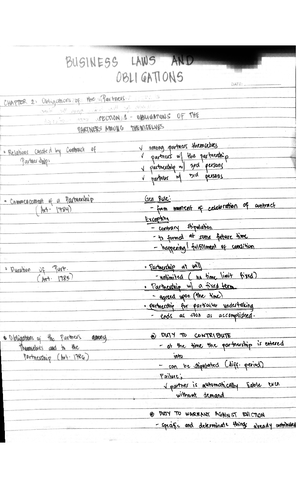 BUSINESS LAWS AND
OBLIGATIONS
CHAPTER 2: Obligations of the Partners
SECTION 1 - OBLIGATIONS OF THE
PARTNERS AMONG THEMSELVES
• Relations Created by Contract of
Partnership.
✓ among partners themselves
✓ partners w/ the partnership
✓ partnership w/ 3rd persons
✓ partners w/ 3rd persons
• Commencement of a Partnership
(Art. 1784)
Gen Rule:
- from moment of celebration of contract
Exception:
- contrary stipulation
- to formed at some future time
- happening / fulfillment of condition
• Duration of Part.
(Art. 1785)
• Partnership at will
- unlimited (no time limit fixed)
• Partnership w/ a fixed term
- agreed upon (the time)
• Partnership for particular undertaking
- ends as soon as accomplished.
• Obligations of the Partners among
themselves and to the
Partnership (Art. 1786)
① DUTY TO CONTRIBUTE
- at the time the partnership is entered
into
- can be stipulated (diff. period)
Failure:
✓ partner is automatically liable
without demand
② DUTY TO WARRANT AGAINST EVICTION
- specific and determinate things already contributed